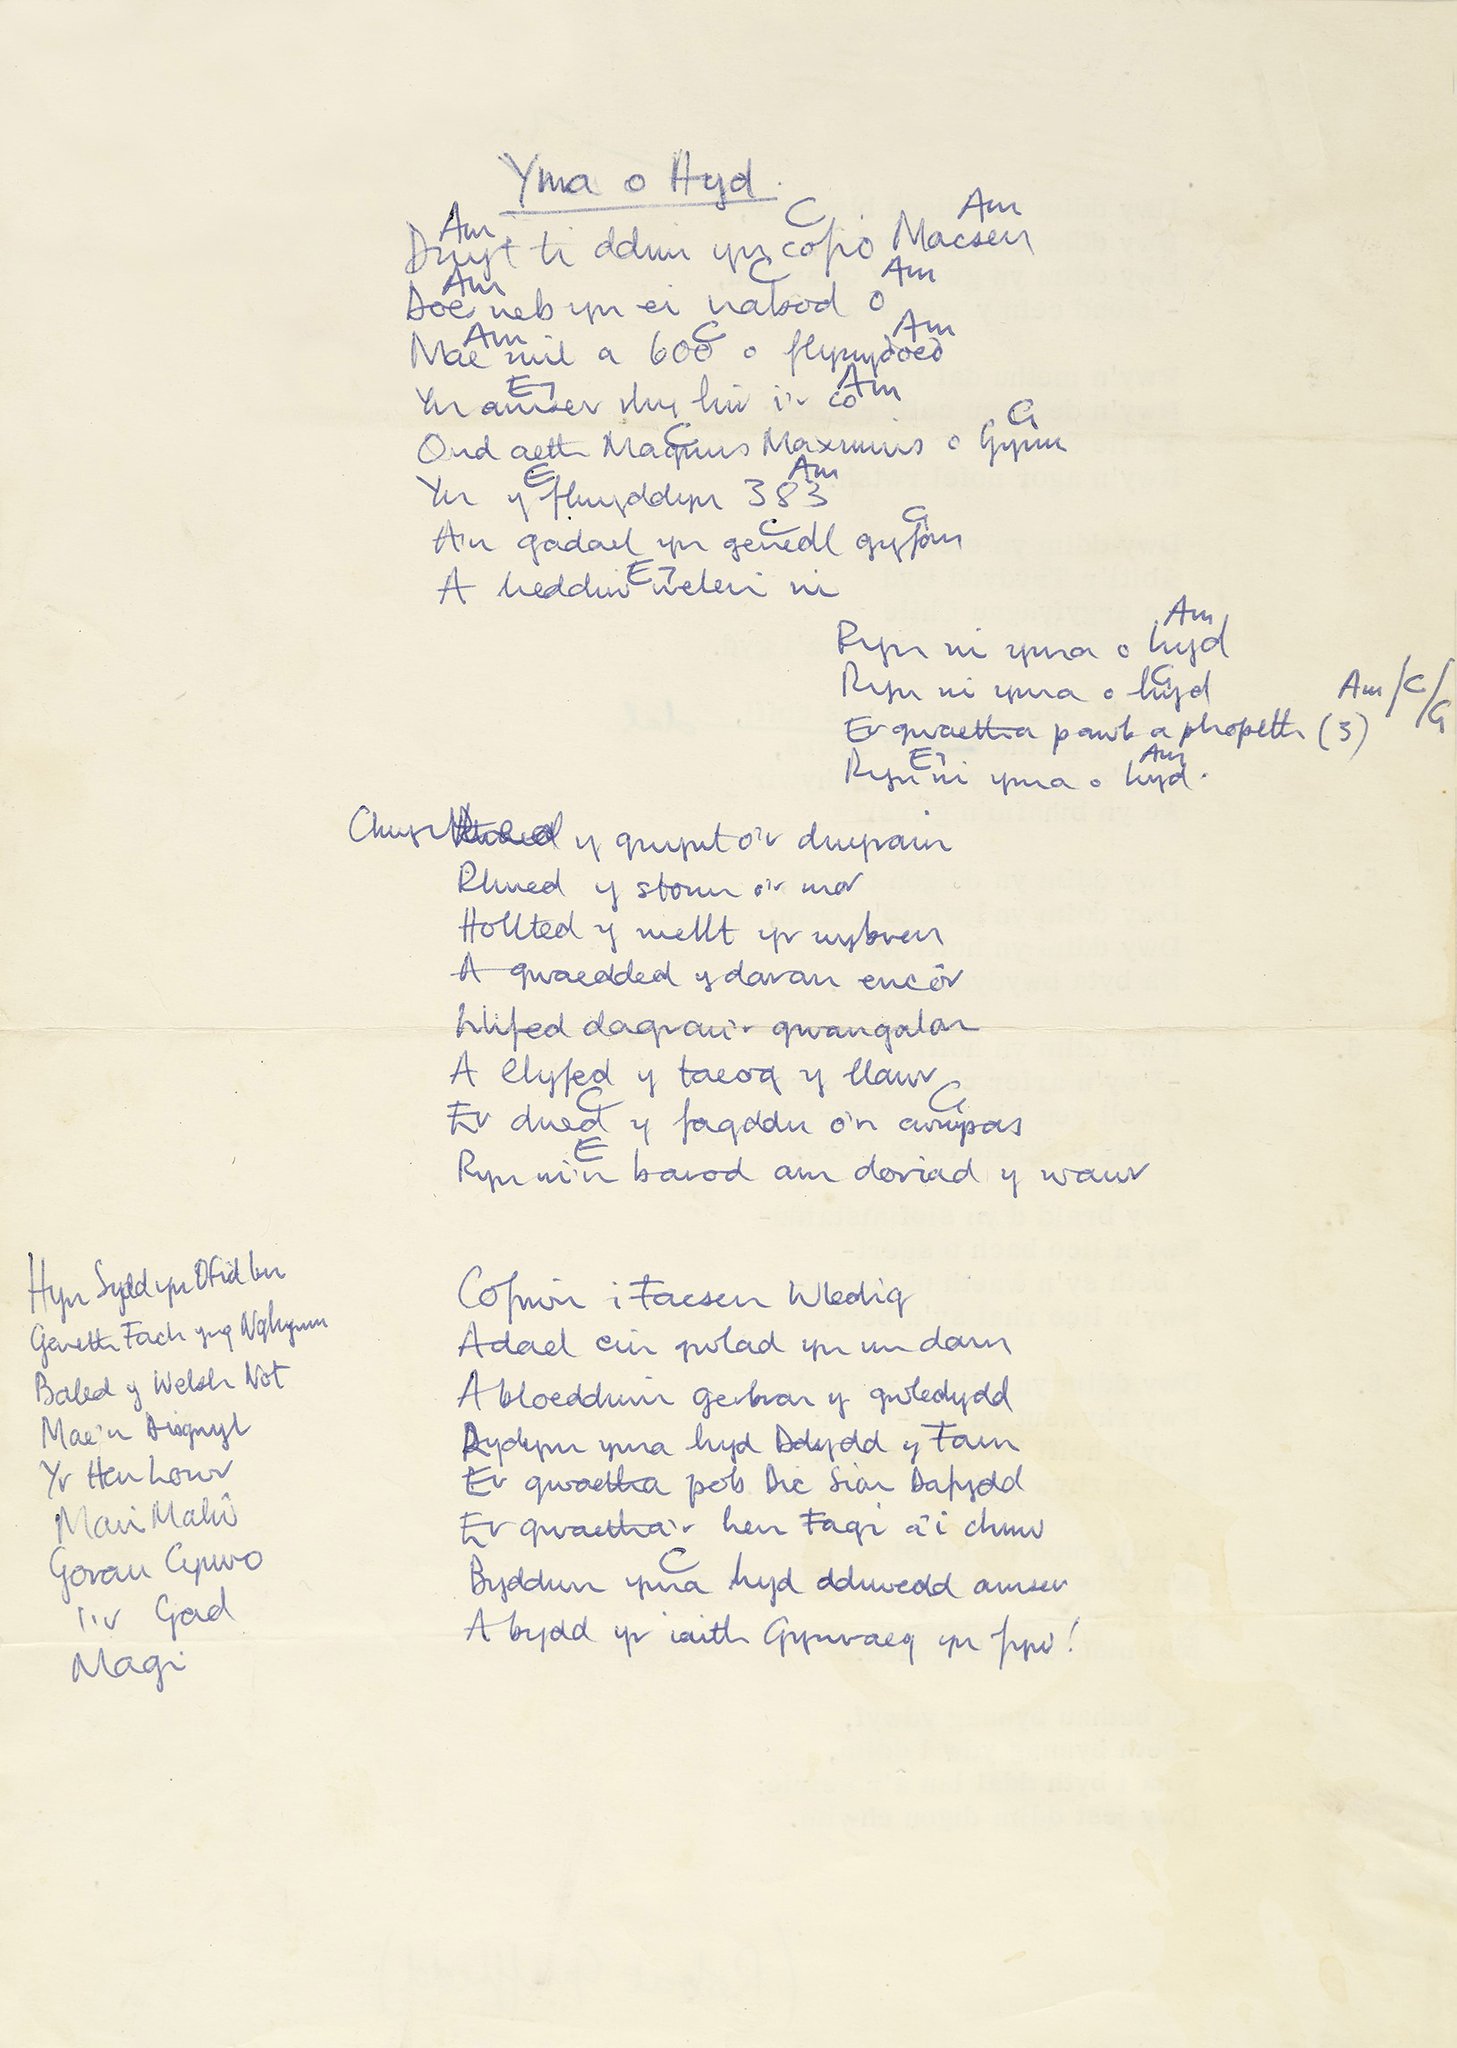 Yma o Hyd.
Am C Am
Dwyt ti ddim yn cofio Macsen
Am C Am
Does neb yn ei nabod o
Am C Am
Mae mil a 600 o flynyddoedd
E7 Am
Yn amser rhy hir i'r co
C G
Ond aeth Magnus Maximus o Gymru
E Am
Yn y flwyddyn 383
C G
A'n gadael yn genedl gyfan
E7
A heddiw welen ni
Am
Ryn ni yma o hyd
G
Ryn ni yma o hyd
Am/C/G
Er gwaetha pawb a phopeth (3)
E7 Am
Ryn ni yma o hyd.
Chwythed y gwynt o'r dwyrain
Rhued y storm o'r mor
Hollted y mellt yr wybren
A gwaedded y daran encôr
Llifed dagrau'r gwangalon
A llyfed y taeog y llawr
C G
Er dued y fagddu o'n cwmpas
E
Ryn ni'n barod am doriad y wawr
Cofiwn i Facsen Wledig
Adael ein gwlad yn un darn
A bloeddiwn gerbron y gwledydd
Rydyn yma hyd Ddydd y Farn
Er gwaetha pob Dic Sion Dafydd
Er gwaetha'r hen Fagi a'i chriw
C
Byddwn yma hyd ddiwedd amser
A bydd yr iaith Gymraeg yn fyw!
Hyn Sydd yn Ofid Im
Geneth Fach yng Nghymru
Baled y Welsh Not
Mae'n Disgwyl
Yr Hen Lowr
Mari Malŵ
Gorau Cymro
I'r Gad
Magi